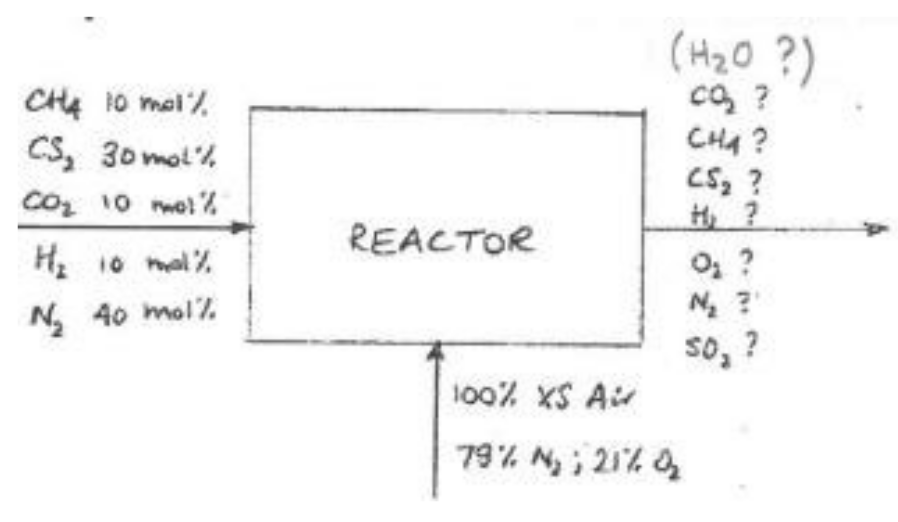 CH4 10 mol%
CS2 30 mol%
CO2 10 mol%
H2 10 mol%
N2 40 mol%
REACTOR
(H2O ?)
CO2 ?
CH4 ?
CS2 ?
H2 ?
O2 ?
N2 ?
SO2 ?
100% XS Air
79% N2 ; 21% O2